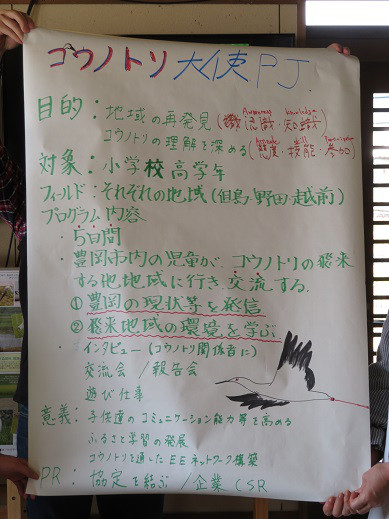 コウノトリ大使PJ.
目的：地域の再発見（意識・知識）
コウノトリの理解を深める（態度・技能・参加）
対象：小学校高学年
フィールド：それぞれの地域（但馬・野田・越前）
プログラム内容
・5日間
・豊岡市内の児童が、コウノトリの飛来
する他地域に行き交流する.
①豊岡の現状等を発信
②飛来地域の環境を学ぶ
・インタビュー（コウノトリ関係者に）
交流会／報告会
遊び仕事
意義：子供達のコミュニケーション能力等を高める
ふるさと学習の発展
コウノトリを通したEEネットワーク構築
PR：協定を結ぶ／企業CSR